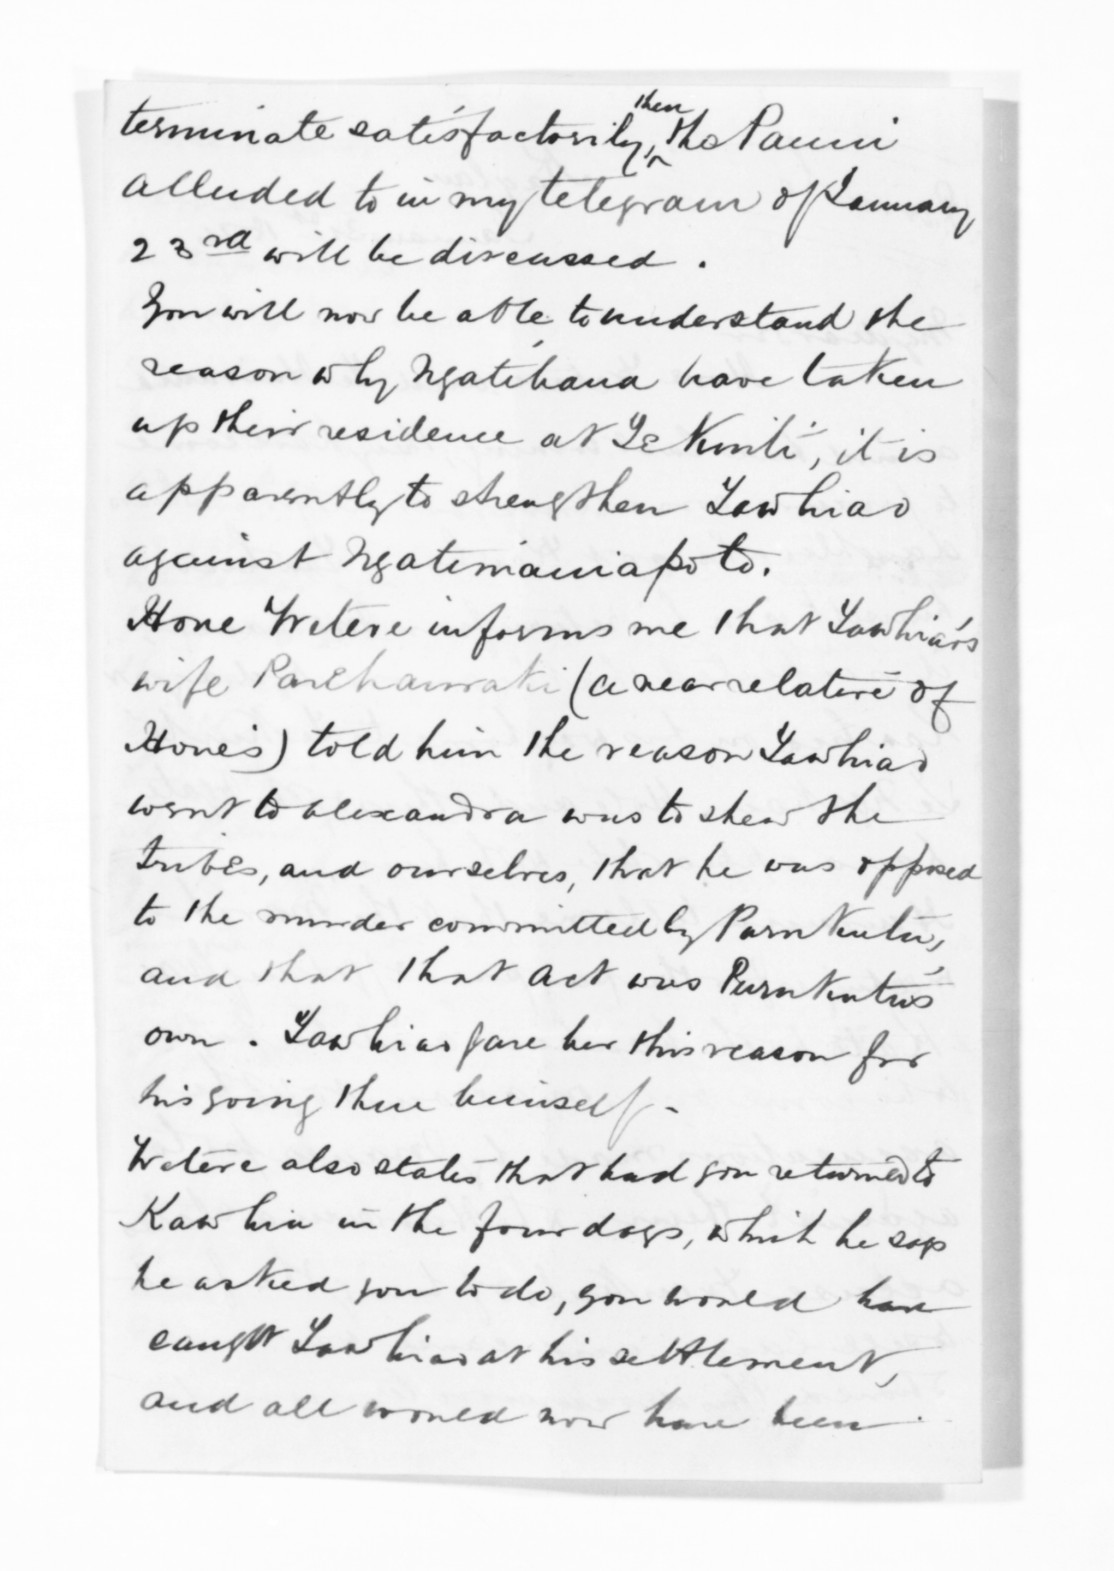 terminate satisfactorily, then the Pauui
alluded to in my telegram of January
23rd will be discussed.
You will now be able to understand the
reason why Ngatihaua have taken
up their residence at Te Kuiti, it is
apparently to strengthen Tawhiao
against Ngatimaniapoto.
Hone Wetere informs me that Tawhiao's
wife Parehauraki (a near relative of
Hone's) told him the reason Tawhiao
went to Alexandra was to shew the
tribes, and ourselves, that he was opposed
to the murder committed by Purukutu,
and that that act was Purukutu's
own. Tawhiao gave her this reason for
his going there himself-
Wetere also states that had you returned to
Kawhia in the four days, which he says
he asked you to do, you would have
caught Tawhiao at his settlement,
and all would now have been